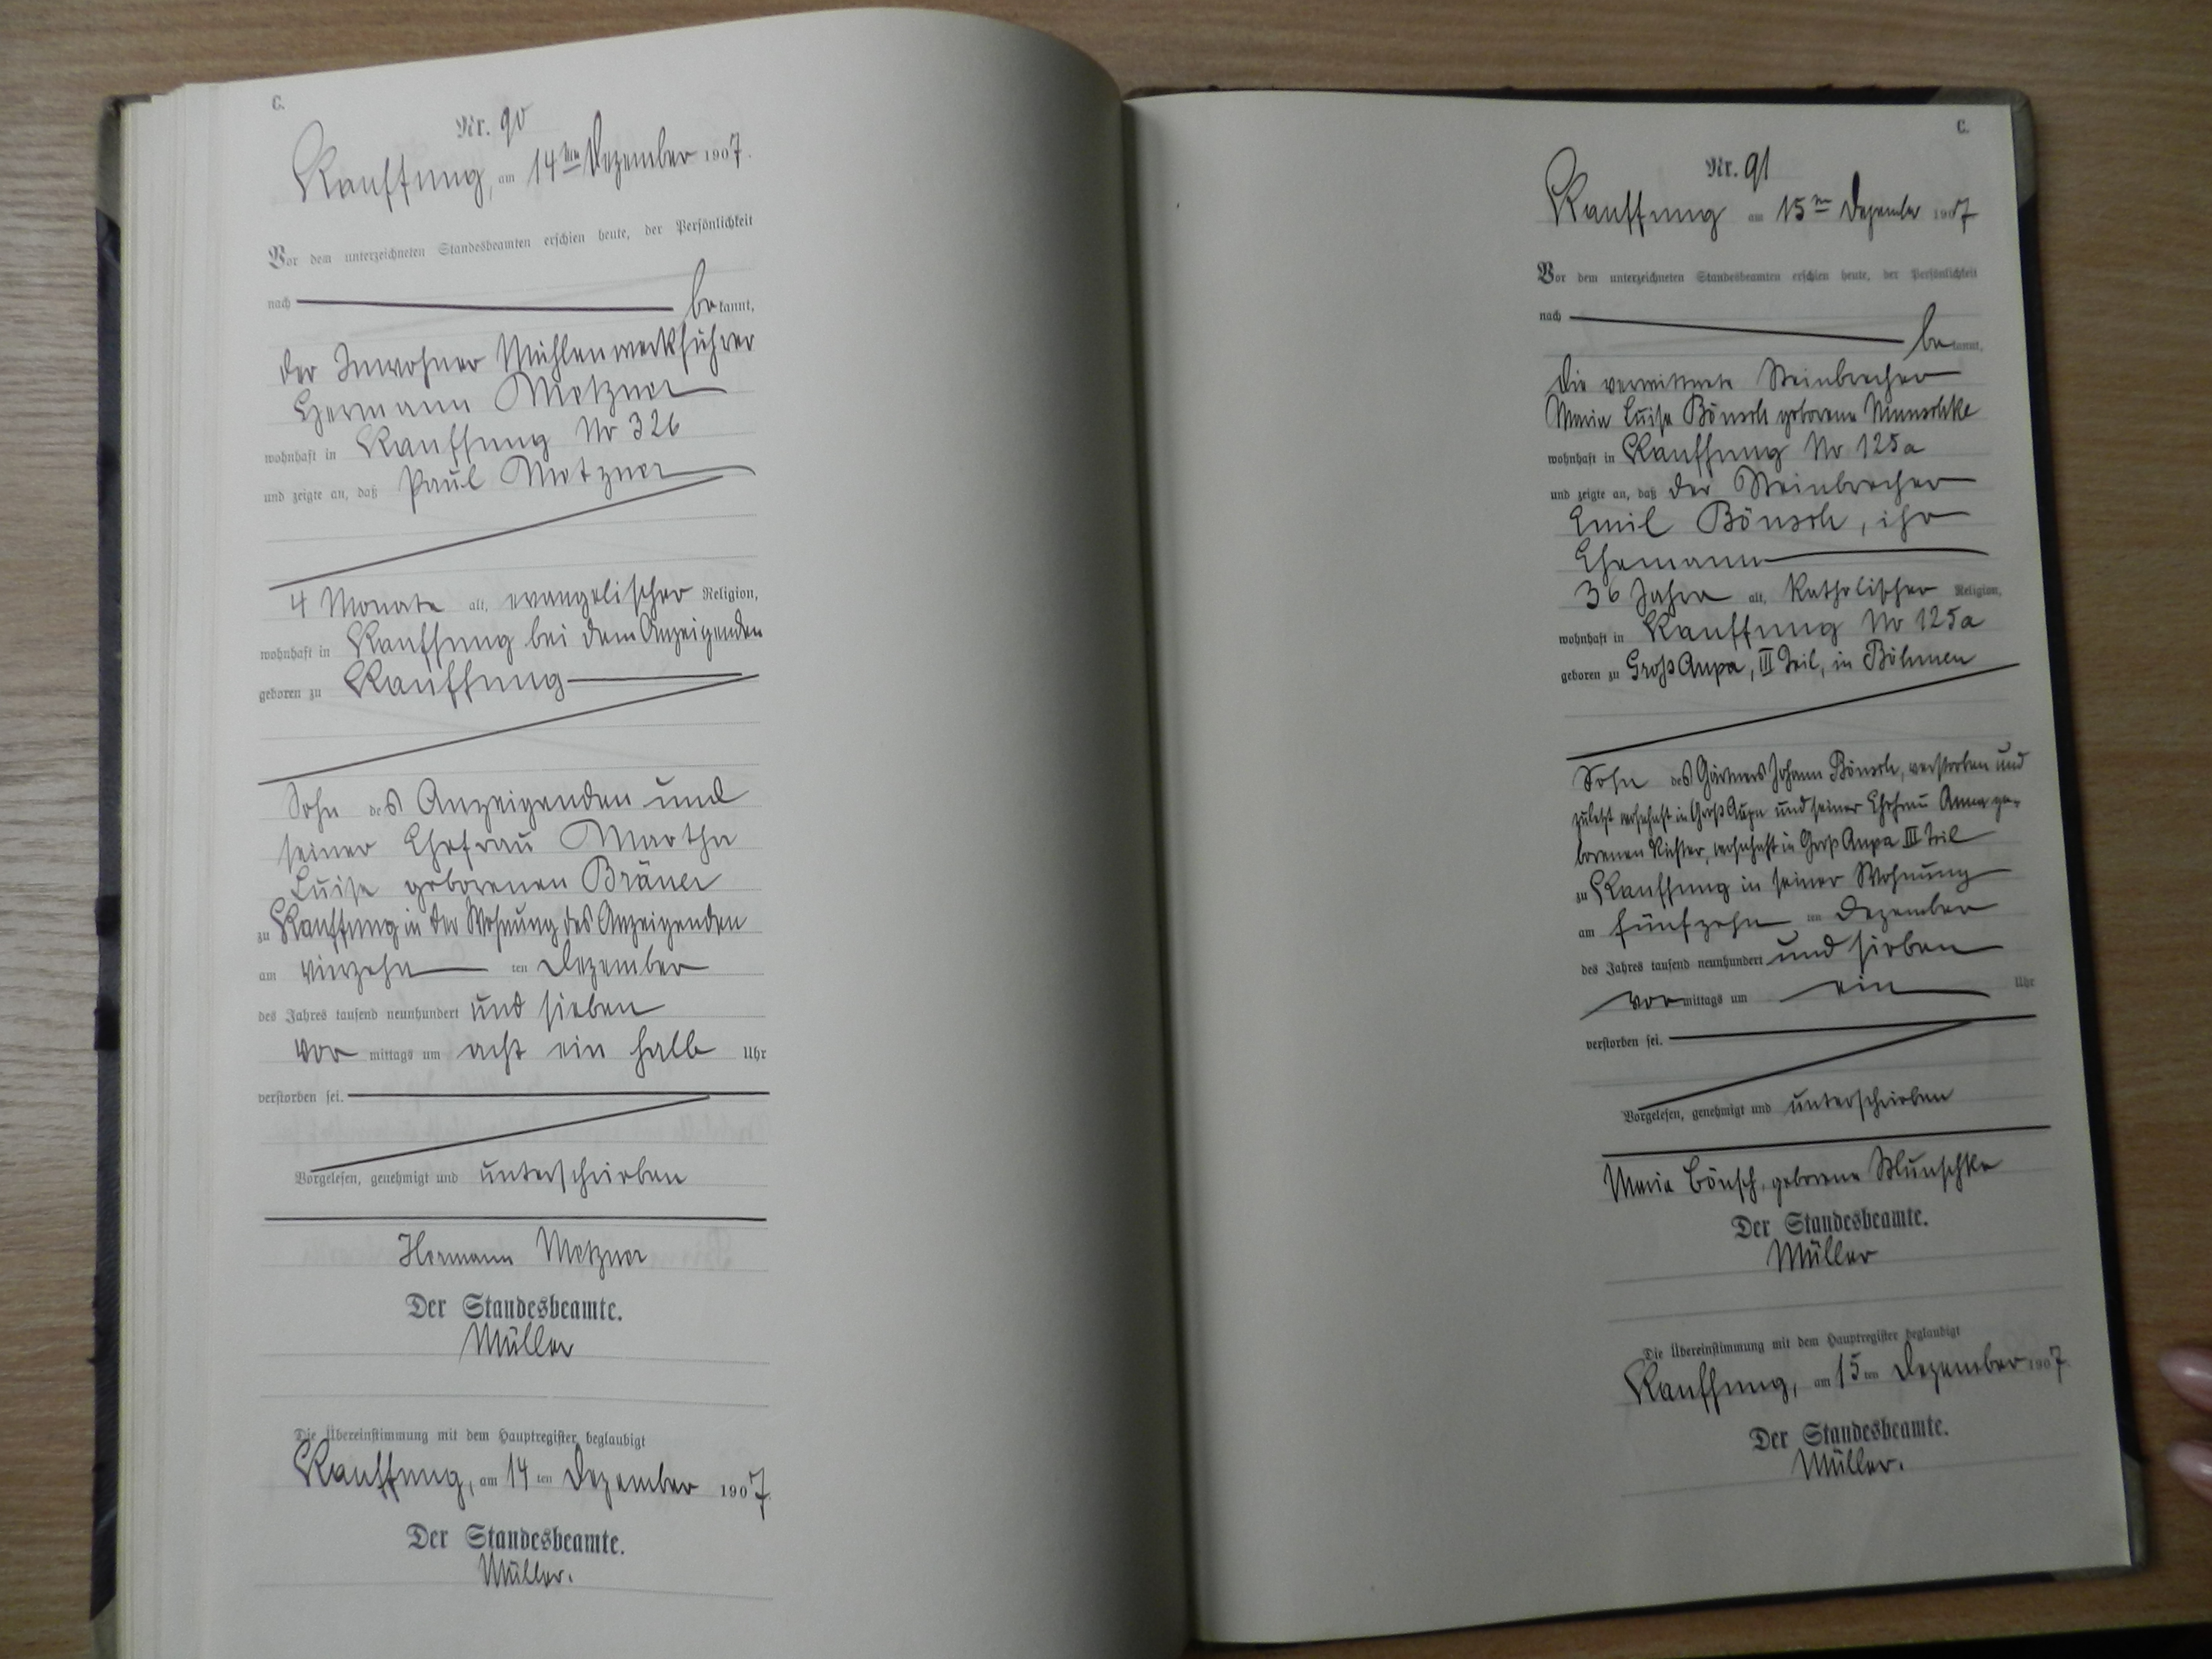 C.
Nr. 90
Kauffung, am 14ten Dezember 1907.
Vor dem unterzeichneten Standesbeamten erschien heute, der Persönlichkeit
nach bekannt,
der Inwohner Mühlenwerkführer
Hermann Metzner
wohnhaft in Kauffung No 326
und zeigte an, daß Paul Metzner
4 Monate alt, evangelischer Religion,
wohnhaft in Kauffung bei dem Anzeigenden
geboren zu Kauffung
Sohn des Anzeigenden und
seiner Ehefrau Martha
Luise geborenen Bräuer
zu Kauffung in der Wohnung des Anzeigenden
am vierzehn ten Dezember
des Jahres tausend neunhundert und sieben
vor mittags um acht ein halb Uhr
verstorben sei.
Vorgelesen, genehmigt und unterschrieben
Hermann Metzner
Der Standesbeamte.
Müller
Die Übereinstimmung mit dem Hauptregister beglaubigt
Kauffung, am 14 ten Dezember 1907.
Der Standesbeamte.
Müller.
C.
Nr. 91
Kauffung am 15ten Dezember 1907
Vor dem unterzeichneten Standesbeamten erschien heute, der Persönlichkeit
nach bekannt,
die verwittwete Steinbrecher
Maria Luise Bönsch geborene Wunschke
wohnhaft in Kauffung No 125a
und zeigte an, daß der Steinbrecher
Emil Bönsch, ihr
Ehemann
36 Jahre alt, katholischer Religion,
wohnhaft in Kauffung No 125a
geboren zu Groß Aupa, III Teil, in Böhmen
Sohn des Gärtners Johann Bönsch, verstorben und
zuletzt wohnhaft in Groß Aupa und seiner Ehefrau Anna ge-
borenen Richter, wohnhaft in Groß Aupa III Teil
zu Kauffung in seiner Wohnung
am fünfzehn ten Dezember
des Jahres tausend neunhundert und sieben
vormittags um ein Uhr
verstorben sei.
Vorgelesen, genehmigt und unterschrieben
Maria Bönsch, geborene Wunschke
Der Standesbeamte.
Müller
Die Übereinstimmung mit dem Hauptregister beglaubigt
Kauffung, am 15 ten Dezember 1907.
Der Standesbeamte.
Müller.